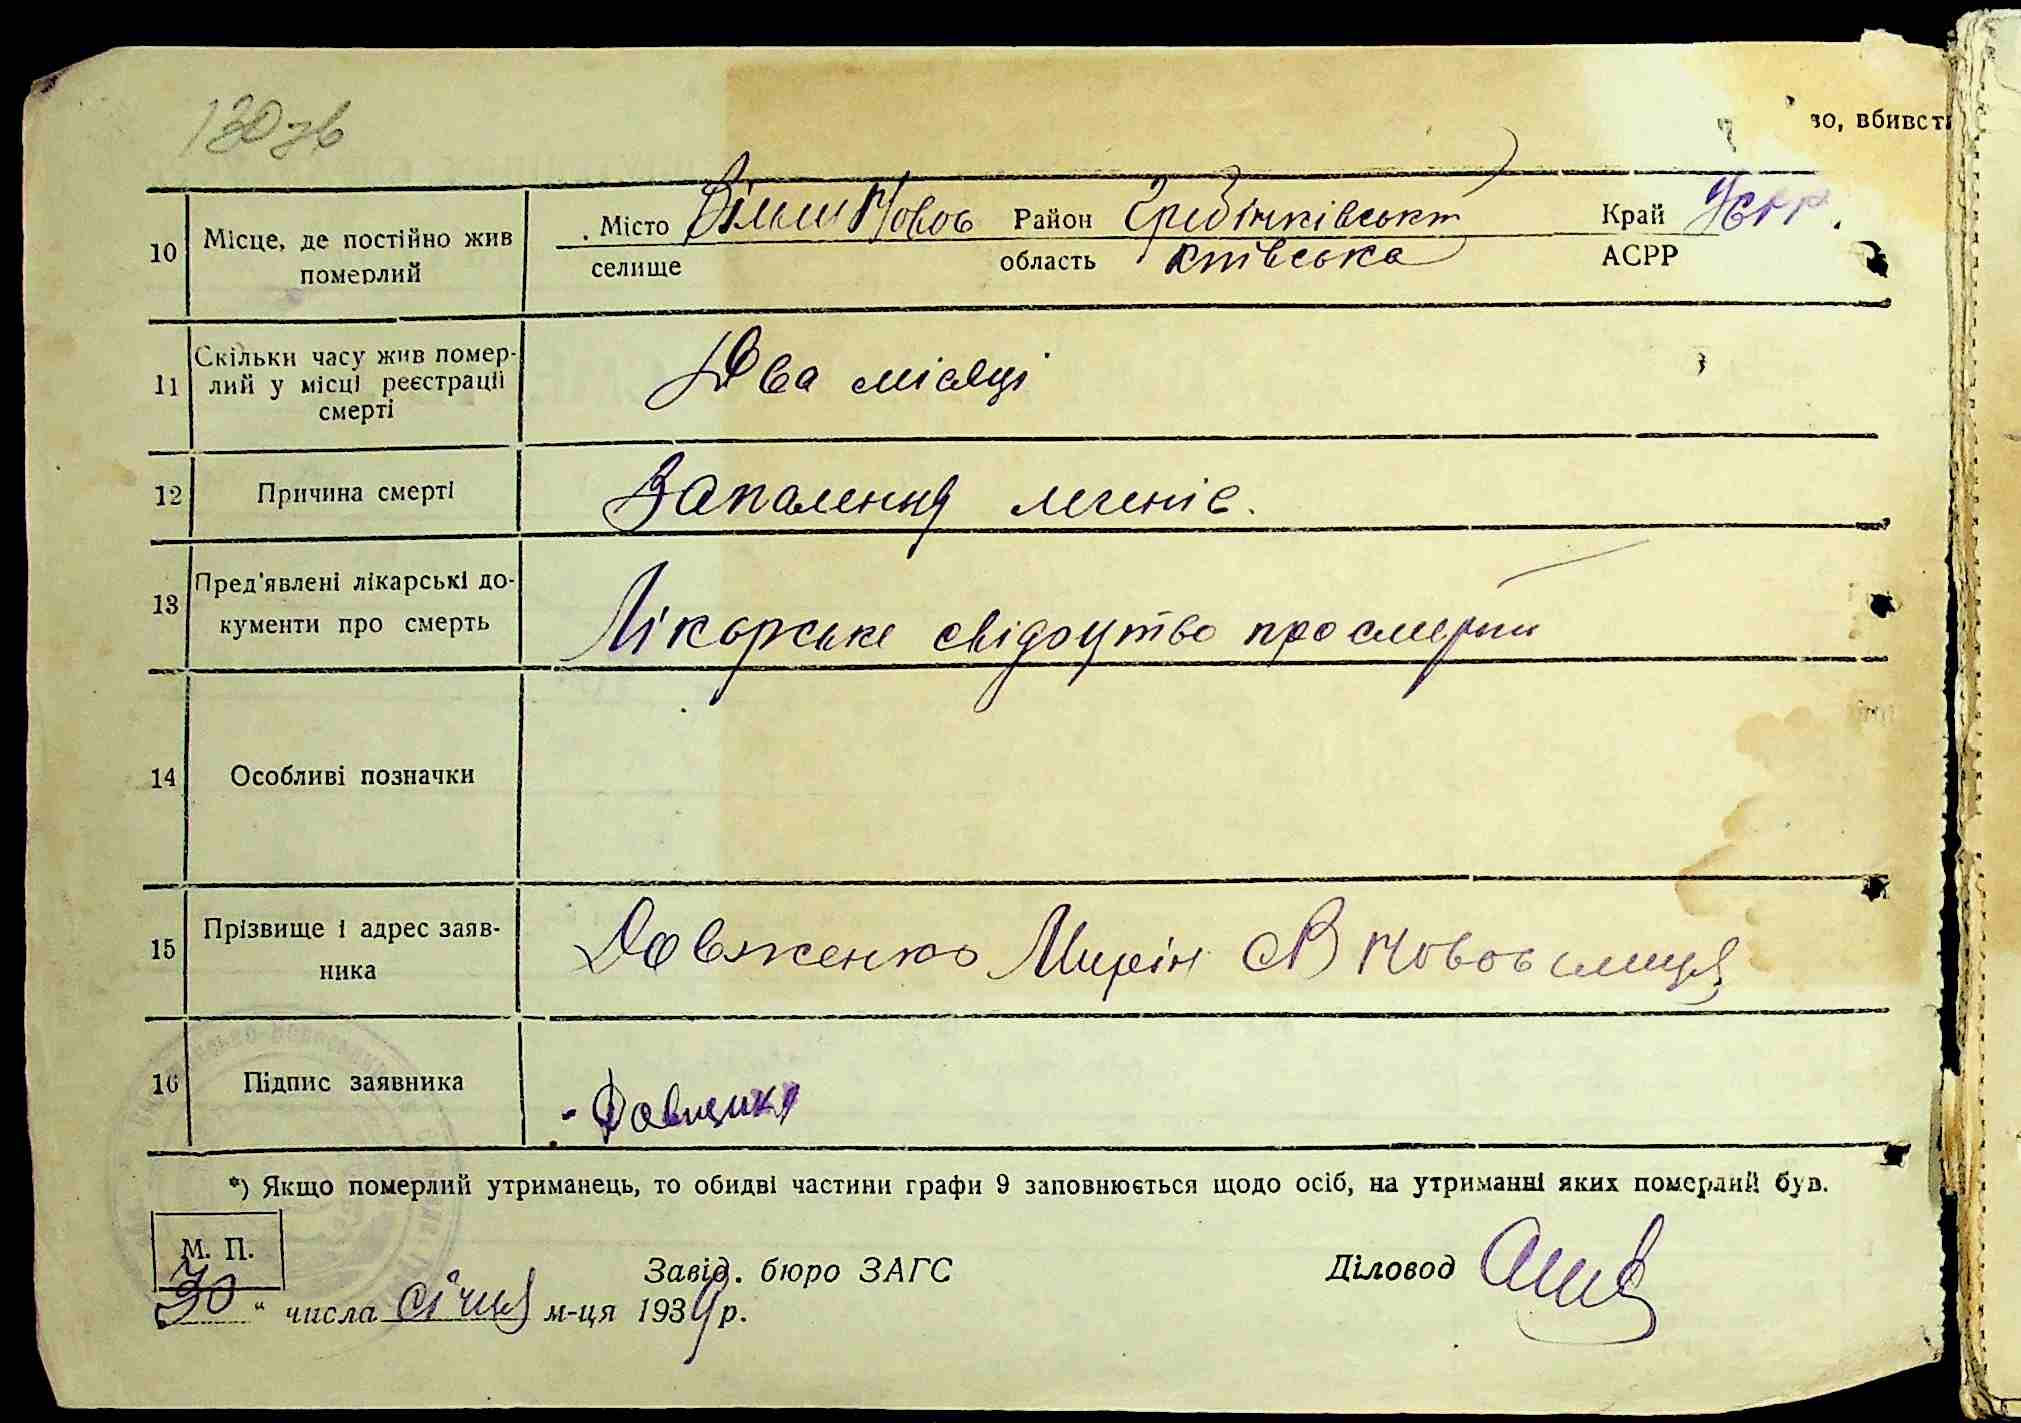 130зв
зо, вбивст
10 Місце, де постійно жив померлий
Місто Вільш Новос Район Гребінківськ Край УСРР.
селище область київська АСРР
11 Скільки часу жив помер-
лий у місці реєстрації
смерті
Два місяці
12 Причина смерті
Запалення легенів.
13 Пред'явлені лікарські до-
кументи про смерть
Лікарське свідоцтво про смерть
14 Особливі позначки
15 Прізвище і адрес заяв-
ника
Довженко Мирін с В Новоселиця
16 Підпис заявника
*) Якщо померлий утриманець, то обидві частини графи 9 заповнюється щодо осіб, на утриманні яких померлий був.
М. П.
Завід. бюро ЗАГС Діловод
30 " числа січня м-ця 1939 р.